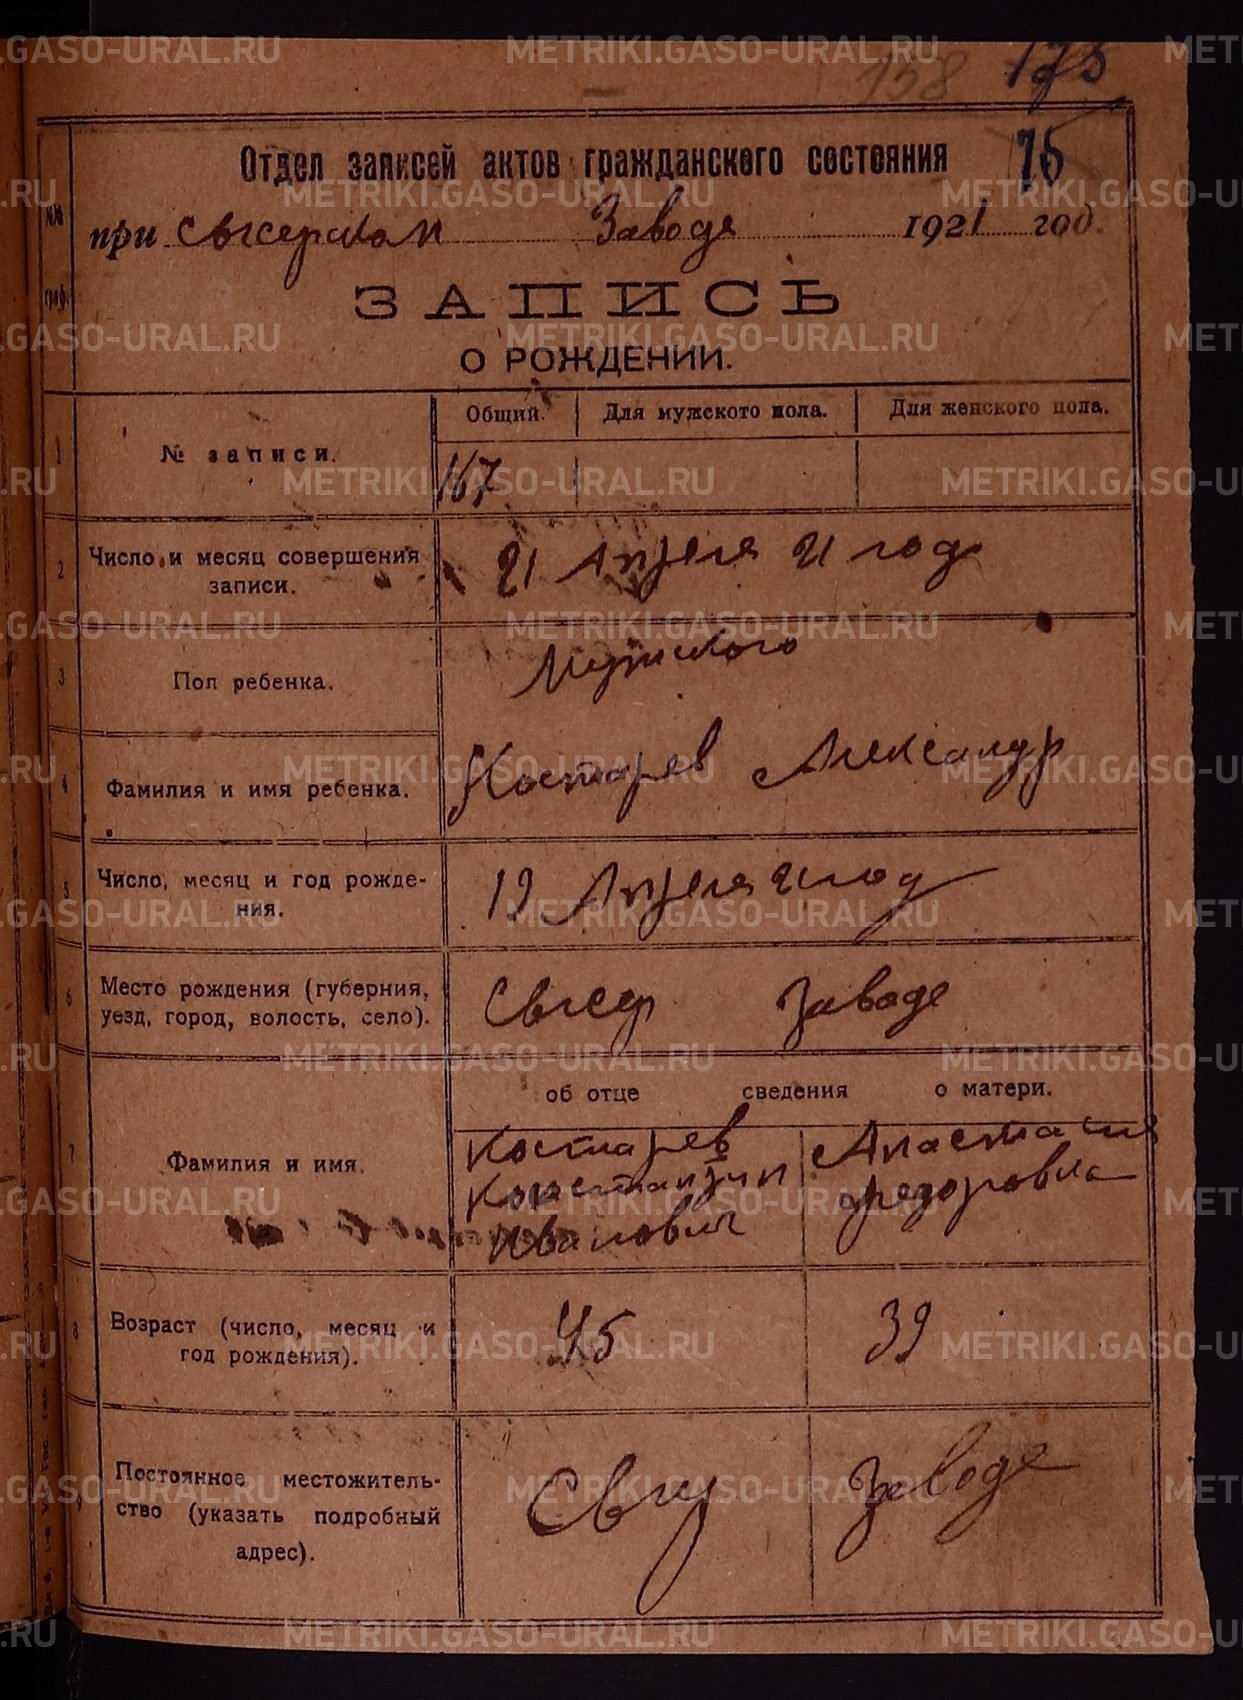 158 175
Отдел записей актов гражданского состояния 76
№№ граф.
при Сысертском Заводе 1921 год.
ЗАПИСЬ
О РОЖДЕНИИ.
1 № записи. Общий. Для мужского пола. Для женского пола.
167
2 Число и месяц совершения записи.
21 Апреля 21 год
3 Пол ребенка.
Мужского
4 Фамилия и имя ребенка.
Костарев Александр
5 Число, месяц и год рожде-
ния.
19 Апреля 21 год
6 Место рождения (губерния,
уезд, город, волость, село).
Сысер Заводе
об отце сведения о матери.
7 Фамилия и имя.
Костарев
Константин
Иванович
Анастасия
Федоровна
8 Возраст (число, месяц и
год рождения).
45 39
9 Постоянное местожитель-
ство (указать подробный
адрес).
Заводе
METRIKI.GASO-URAL.RU